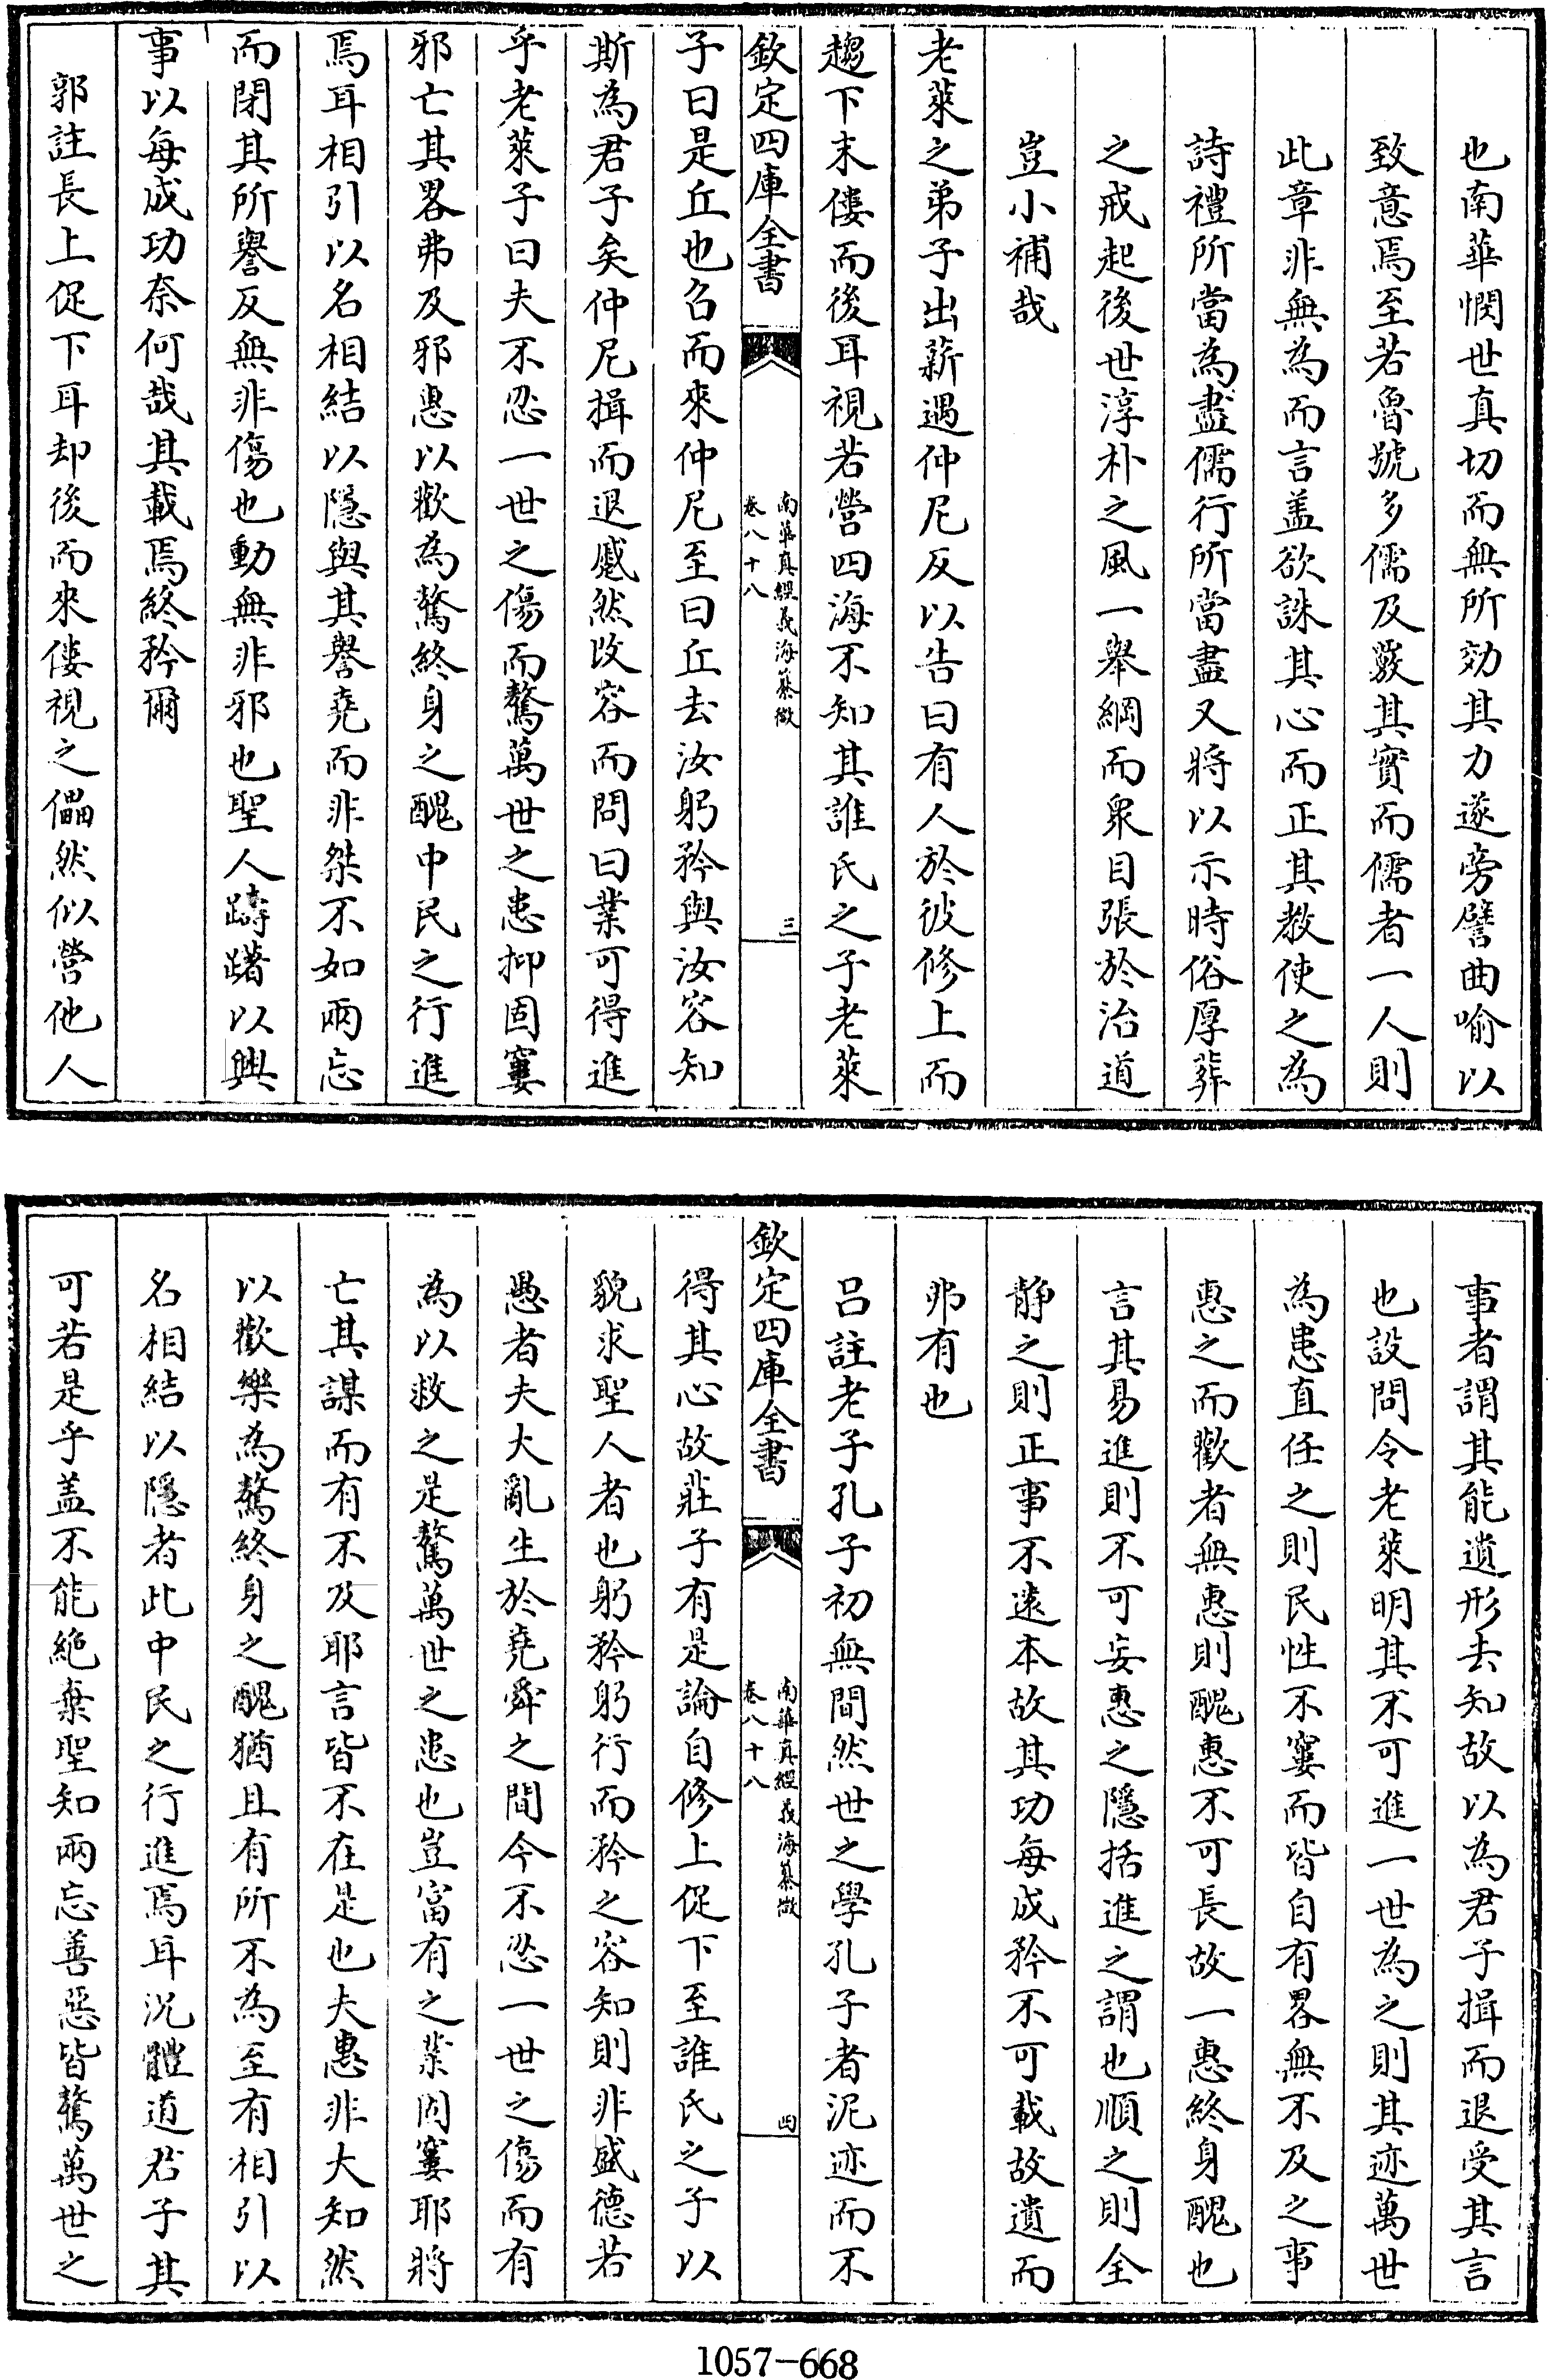 也南華憫世真切而無所効其力遂旁譬曲喻以
致意焉至若魯號多儒及覈其實而儒者一人則
此章非無為而言盖欲誅其心而正其教使之為
詩禮所當為盡儒行所當盡又將以示時俗厚葬
之戒起後世淳朴之風一舉綱而衆目張於治道
豈小補哉
老萊之弟子出薪遇仲尼反以告曰有人於彼修上而
趨下末僂而後耳視若營四海不知其誰氏之子老萊
欽定四庫全書
南華真經義海纂微
卷八十八
三
子曰是丘也召而來仲尼至曰丘去汝躬矜與汝容知
斯為君子矣仲尼揖而退蹙然改容而問曰業可得進
乎老萊子曰夫不忍一世之傷而驁萬世之患抑固窶
邪亡其畧弗及邪惠以歡為驁終身之醜中民之行進
焉耳相引以名相結以隱與其譽堯而非桀不如兩忘
而閉其所譽反無非傷也動無非邪也聖人躊躇以興
事以每成功奈何哉其載焉終矜爾
郭註長上促下耳却後而來僂視之儡然似營他人
事者謂其能遺形去知故以為君子揖而退受其言
也設問令老萊明其不可進一世為之則其迹萬世
為患直任之則民性不窶而皆自有畧無不及之事
惠之而歡者無惠則醜惠不可長故一惠終身醜也
言其易進則不可妄惠之隱括進之謂也順之則全
靜之則正事不遠本故其功每成矜不可載故遺而
弗有也
呂註老子孔子初無間然世之學孔子者泥迹而不
欽定四庫全書
南華真經義海纂微
卷八十八
四
得其心故莊子有是論自修上促下至誰氏之子以
貌求聖人者也躬矜躬行而矜之容知則非盛德若
愚者夫大亂生於堯舜之間今不忍一世之傷而有
為以救之是驁萬世之患也豈富有之業固窶耶將
亡其謀而有不及耶言皆不在是也夫惠非大知然
以歡樂為驁終身之醜猶且有所不為至有相引以
名相結以隱者此中民之行進焉耳況體道君子其
可若是乎盖不能絶棄聖知兩忘善惡皆驁萬世之
1057-668